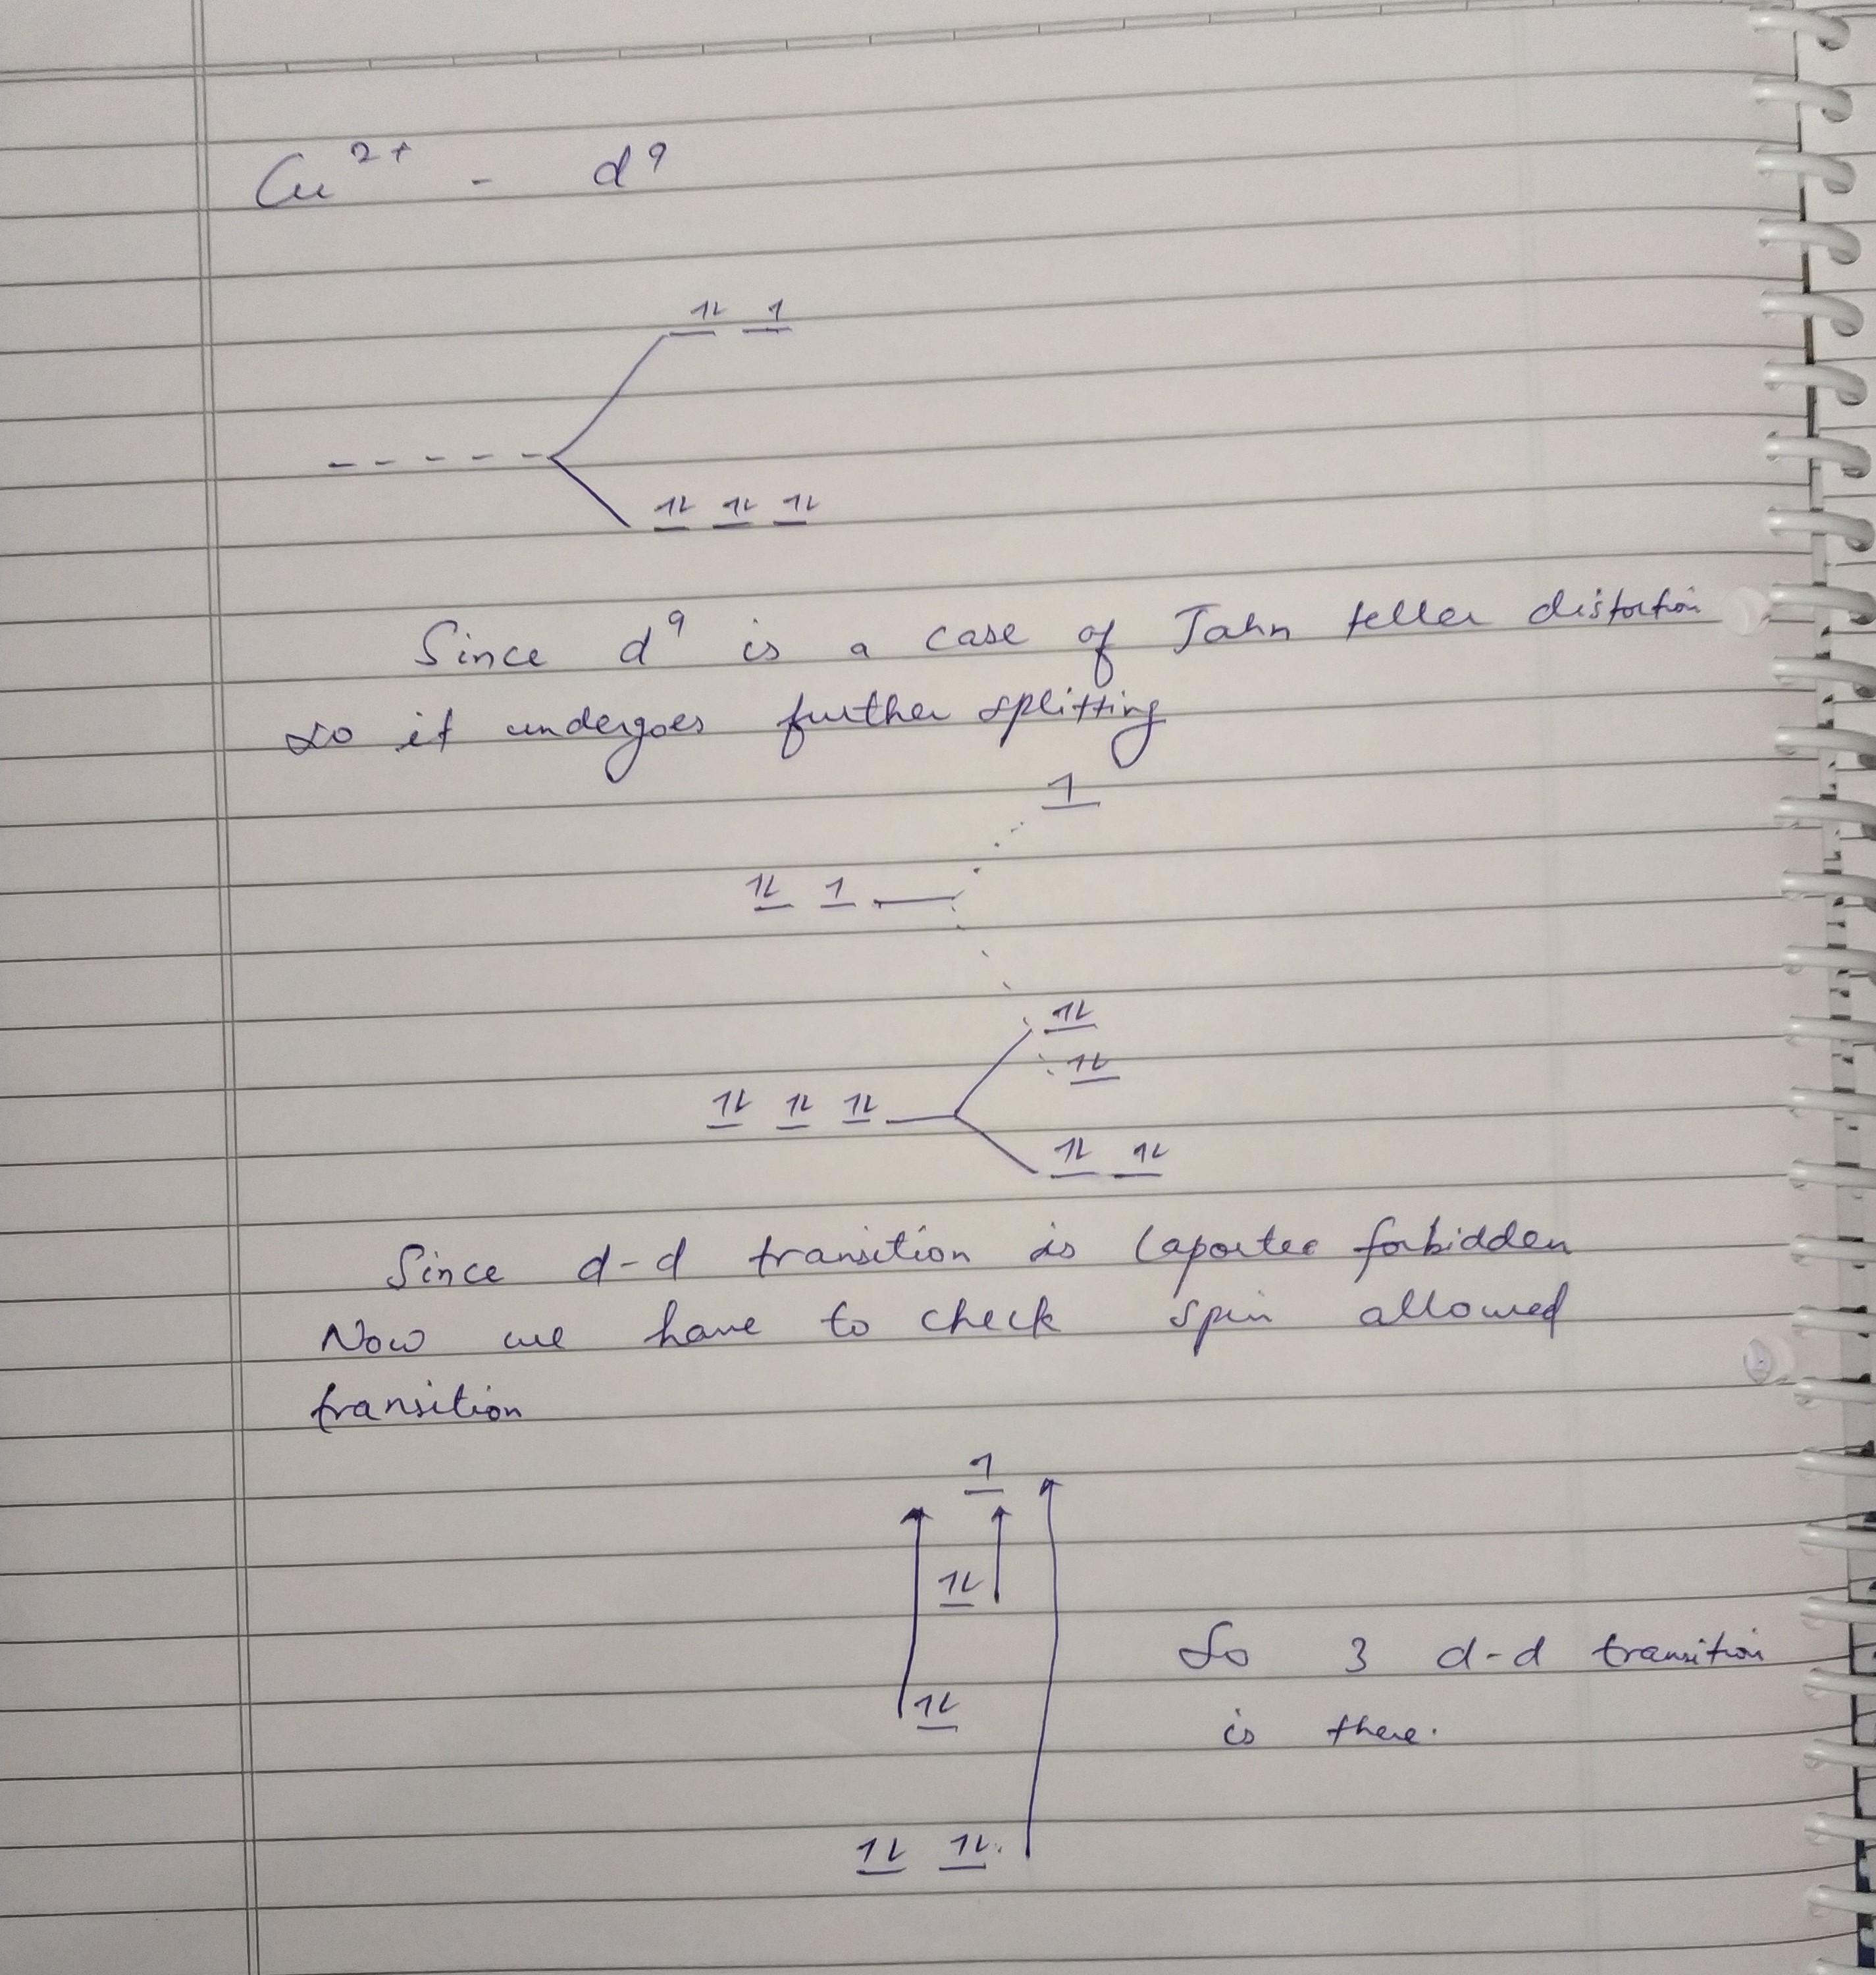 Cu²⁺ - d⁹
1L 1
1L 1L 1L
Since d⁹ is a case of Jahn teller distortion
so it undergoes further splitting
1
1L 1
1L
1L
1L 1L 1L
1L 1L
Since d-d transition is laportee forbidden
Now we have to check spin allowed
transition
1
1L
So 3 d-d transition
1L
is there.
1L 1L